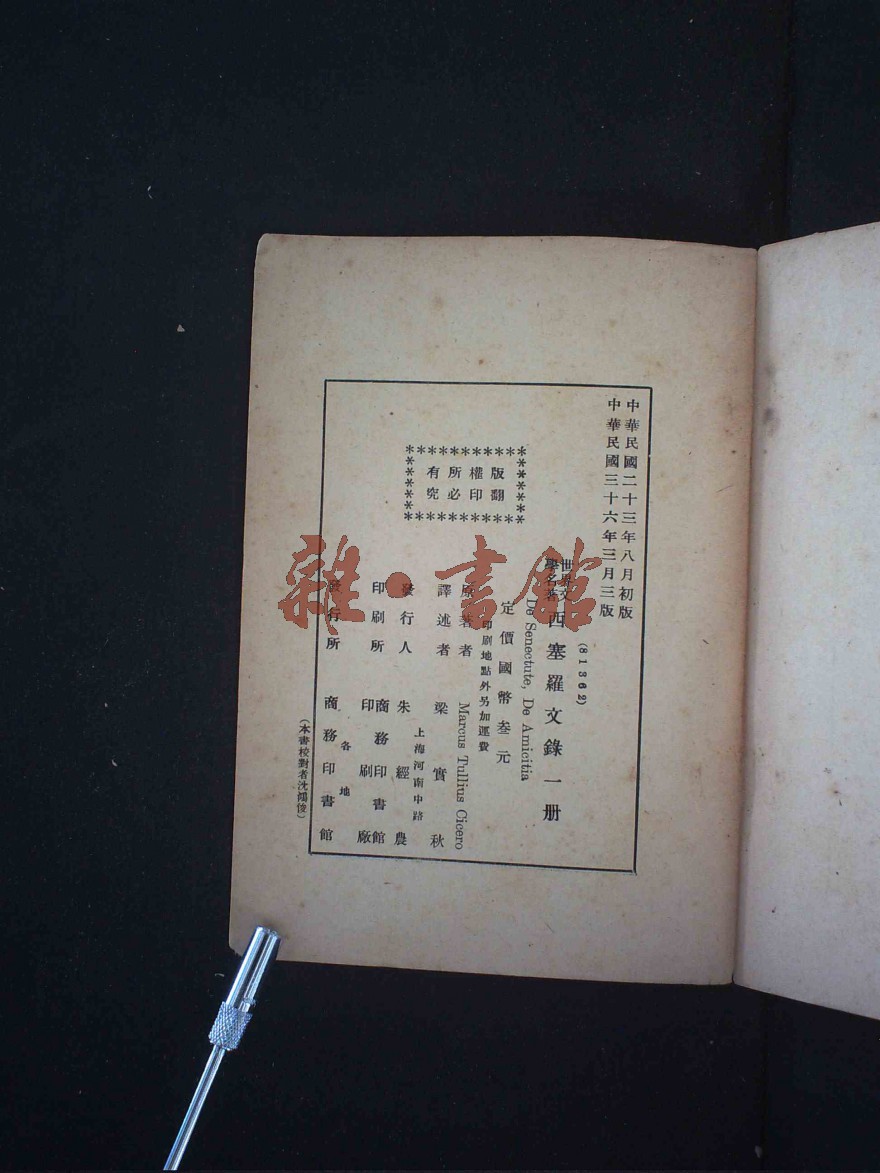 中華民國二十三年八月初版
中華民國三十六年三月三版
(81362)
世界文學名著 西塞羅文錄 一册
De Senectute, De Amicitia
定價國幣叁元
印刷地點外另加運費
原著者 Marcus Tullius Cicero
譯述者 梁實秋
上海河南中路
發行人 朱經農
印刷所 商務印書館印刷廠
各地
發行所 商務印書館
(本書校對者沈鴻俊)
版權所有
翻印必究
雜·書館